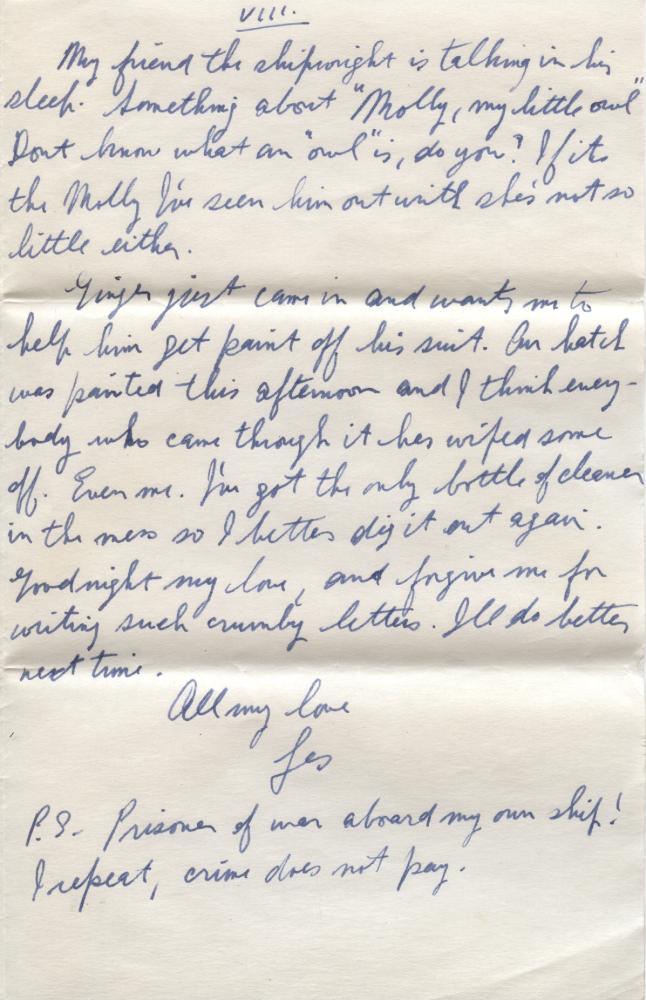 VIII.
My friend the shipwright is talking in his
sleep. Something about "Molly, my little owl"
Dont know what an "owl" is, do you? If its
the Molly I've seen him out with she's not so
little either.
Ginger just came in and wants me to
help him get paint off his suit. Our hatch
was painted this afternoon and I think every-
body who came through it has wiped some
off. Even me. I've got the only bottle of cleaner
in the mess so I better dig it out again.
Goodnight my love, and forgive me for
writing such crumby letters. I'll do better
next time.
All my love
Les
P.S. Prisoner of war aboard my own ship!
I repeat, crime does not pay.